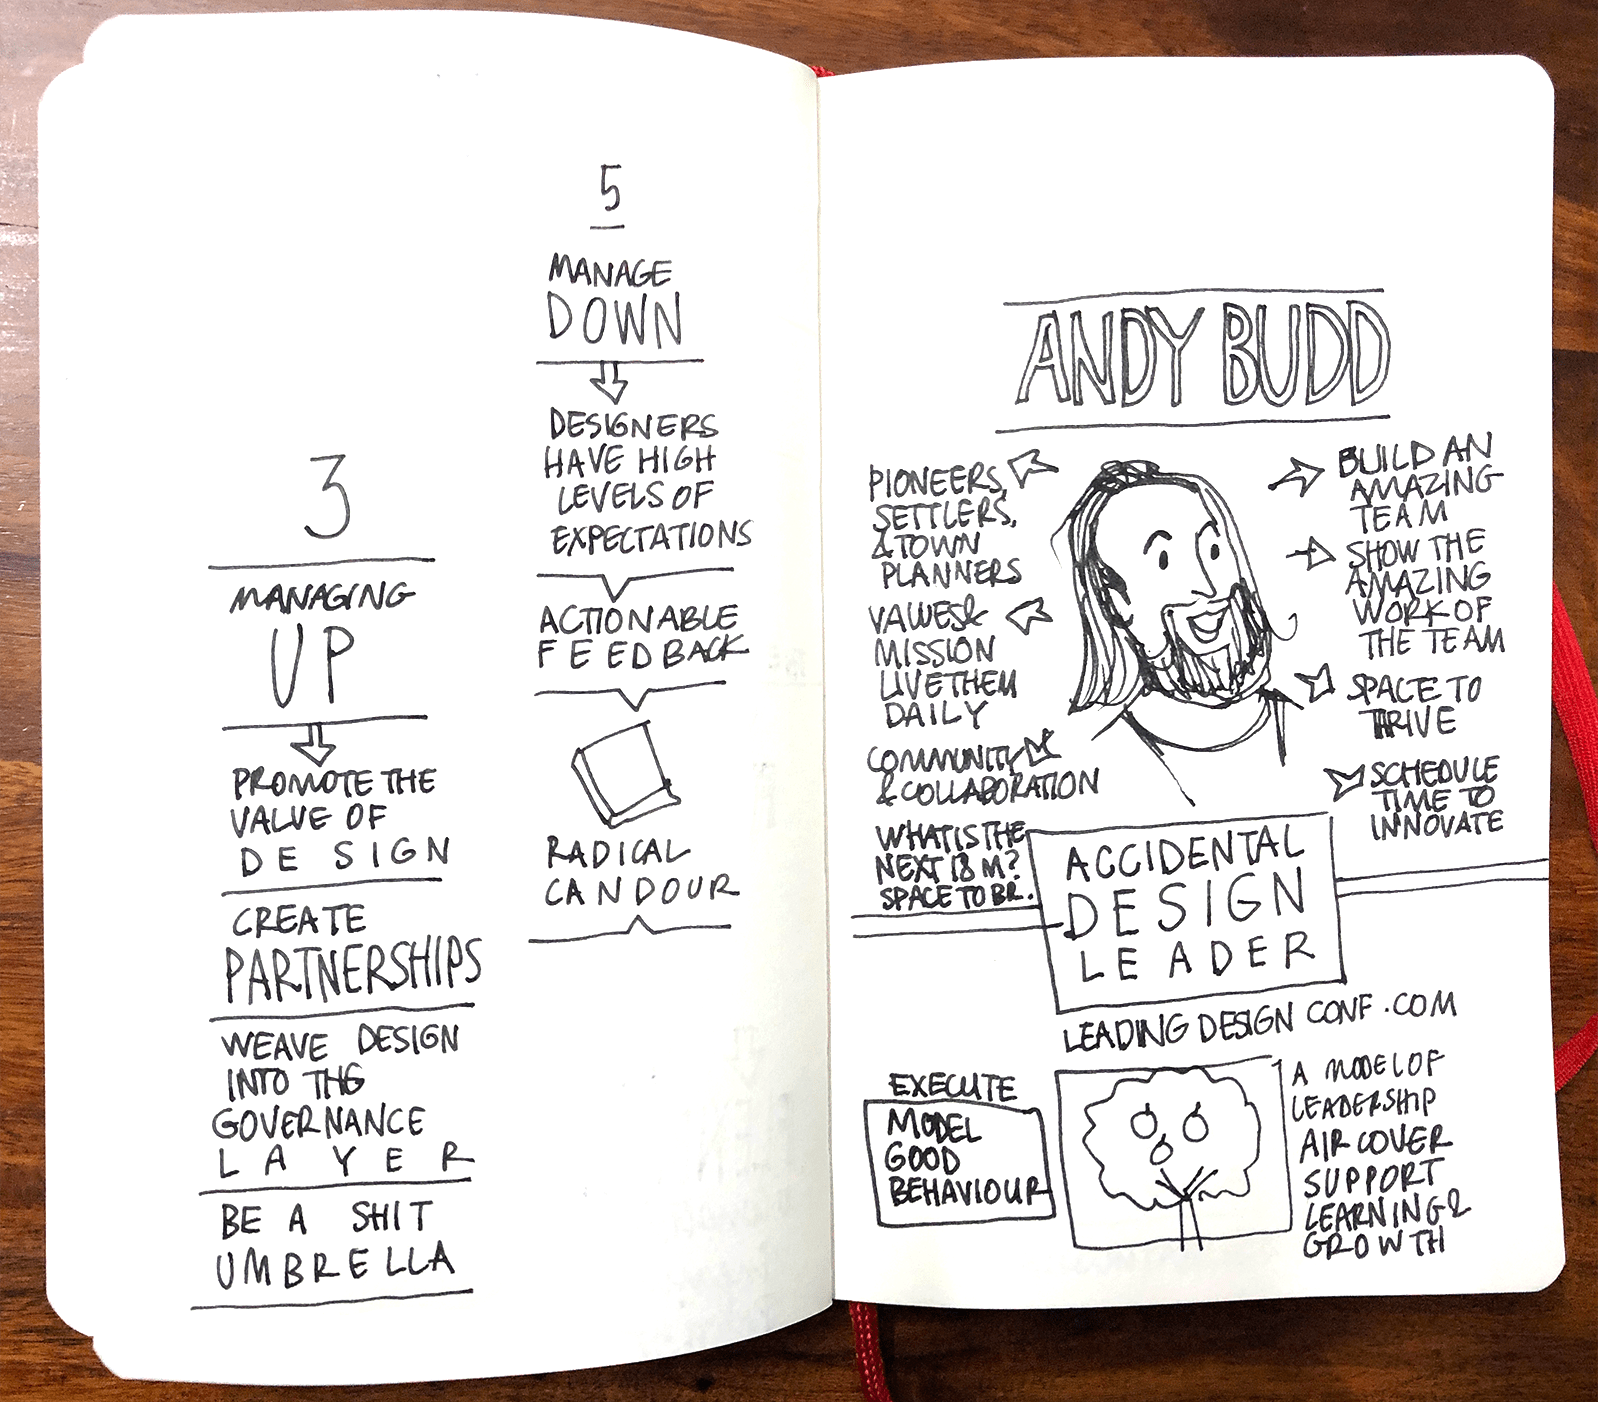 3
MANAGING
UP
PROMOTE THE
VALUE OF
DESIGN
CREATE
PARTNERSHIPS
WEAVE DESIGN
INTO THE
GOVERNANCE
LAYER
BE A SHIT
UMBRELLA
5
MANAGE
DOWN
DESIGNERS
HAVE HIGH
LEVELS OF
EXPECTATIONS
ACTIONABLE
FEEDBACK
RADICAL
CANDOUR
ANDY BUDD
PIONEERS,
SETTLERS,
& TOWN
PLANNERS
VALUES &
MISSION
LIVE THEM
DAILY
COMMUNITY
& COLLABORATION
WHAT IS THE
NEXT 18 M?
SPACE TO BR.
BUILD AN
AMAZING
TEAM
SHOW THE
AMAZING
WORK OF
THE TEAM
SPACE TO
THRIVE
SCHEDULE
TIME TO
INNOVATE
ACCIDENTAL
DESIGN
LEADER
LEADING DESIGN CONF.COM
EXECUTE
MODEL
GOOD
BEHAVIOUR
A MODEL OF
LEADERSHIP
AIR COVER
SUPPORT
LEARNING &
GROWTH